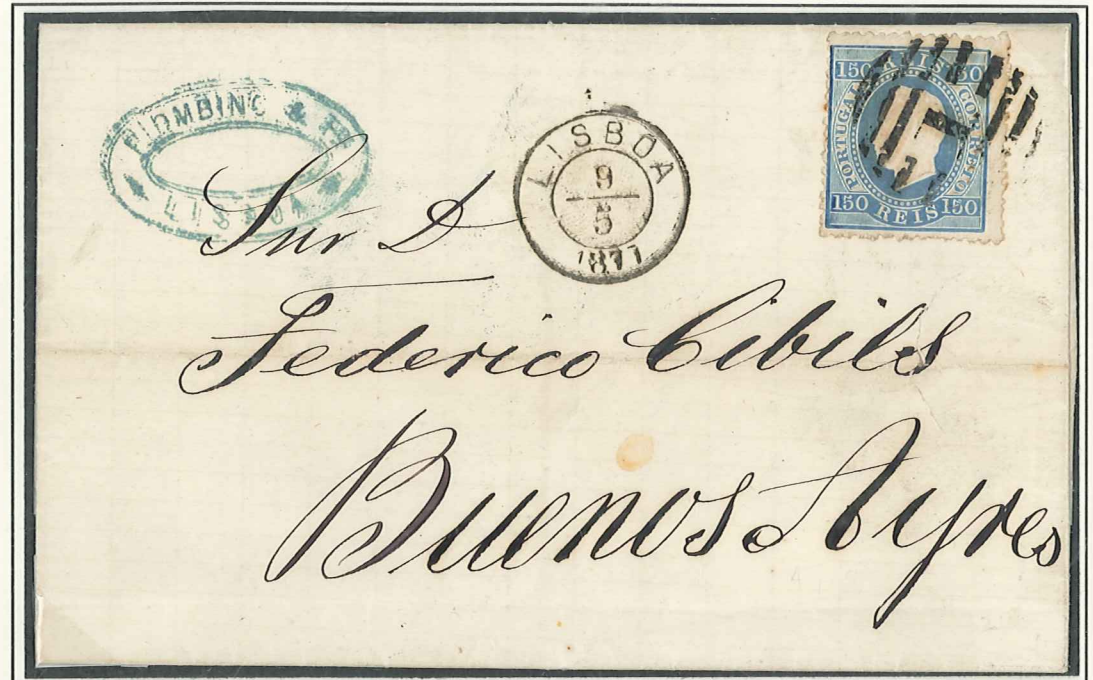 PIOMBINO &
LISBOA
LISBOA
9
5
1877
150 REIS 50
PORTUGAL
CORREIO
150 REIS 150
Snr D
Federico Cibils
Buenos Ayres